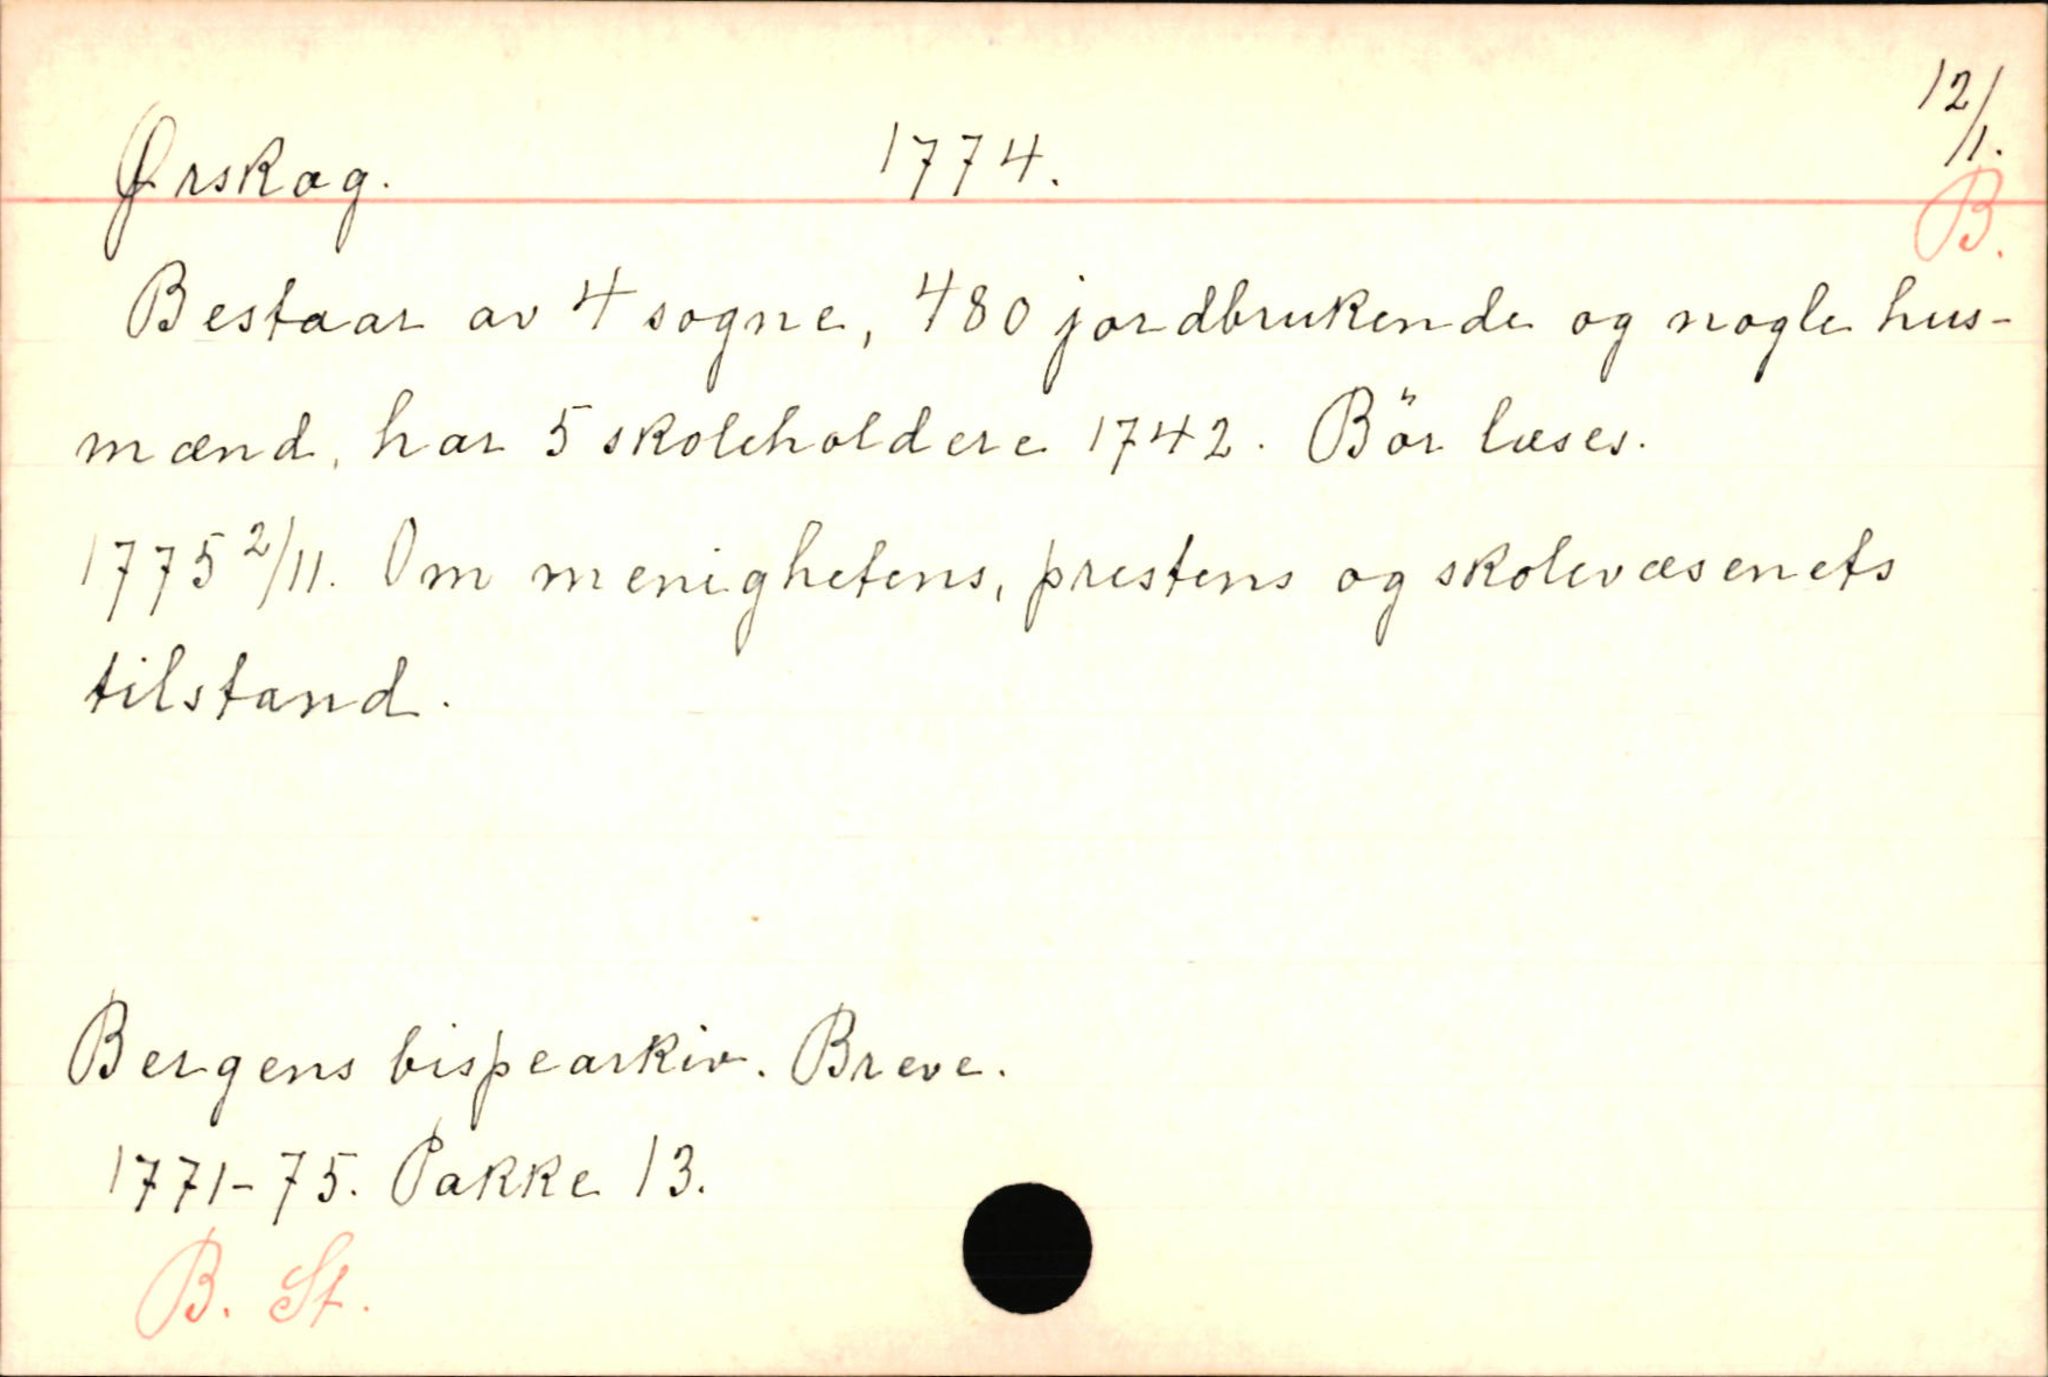 Ørskog. 1774. 12/1.
B.
Bestaar av 4 sogne, 480 jordbrukende og nogle hus-
mænd, har 5 skoleholdere 1742. Bör læses.
1775 2/11. Om menighetens, prestens og skolevæsenets
tilstand.
Bergens bispearkiv. Breve.
1771-75. Pakke 13.
B. St.